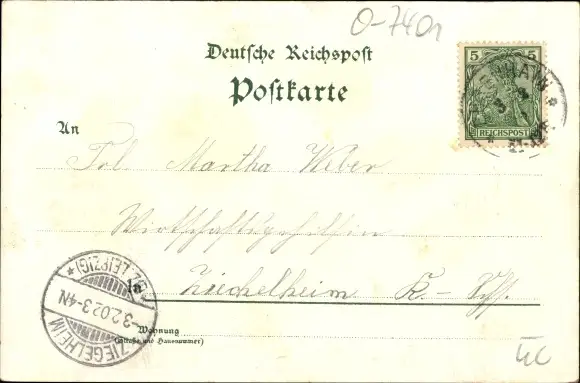 O-7401
Deutsche Reichspost
Postkarte
5 5
REICHSPOST
An
Frl. Martha Weber
Wirtschaftsgehilfin
In Ziechelheim K.- Sss.
ZIEGELHEIM
(BZ. LEIPZIG)
*
-3.2.02.3-4N
Wohnung
(Straße und Hausnummer)